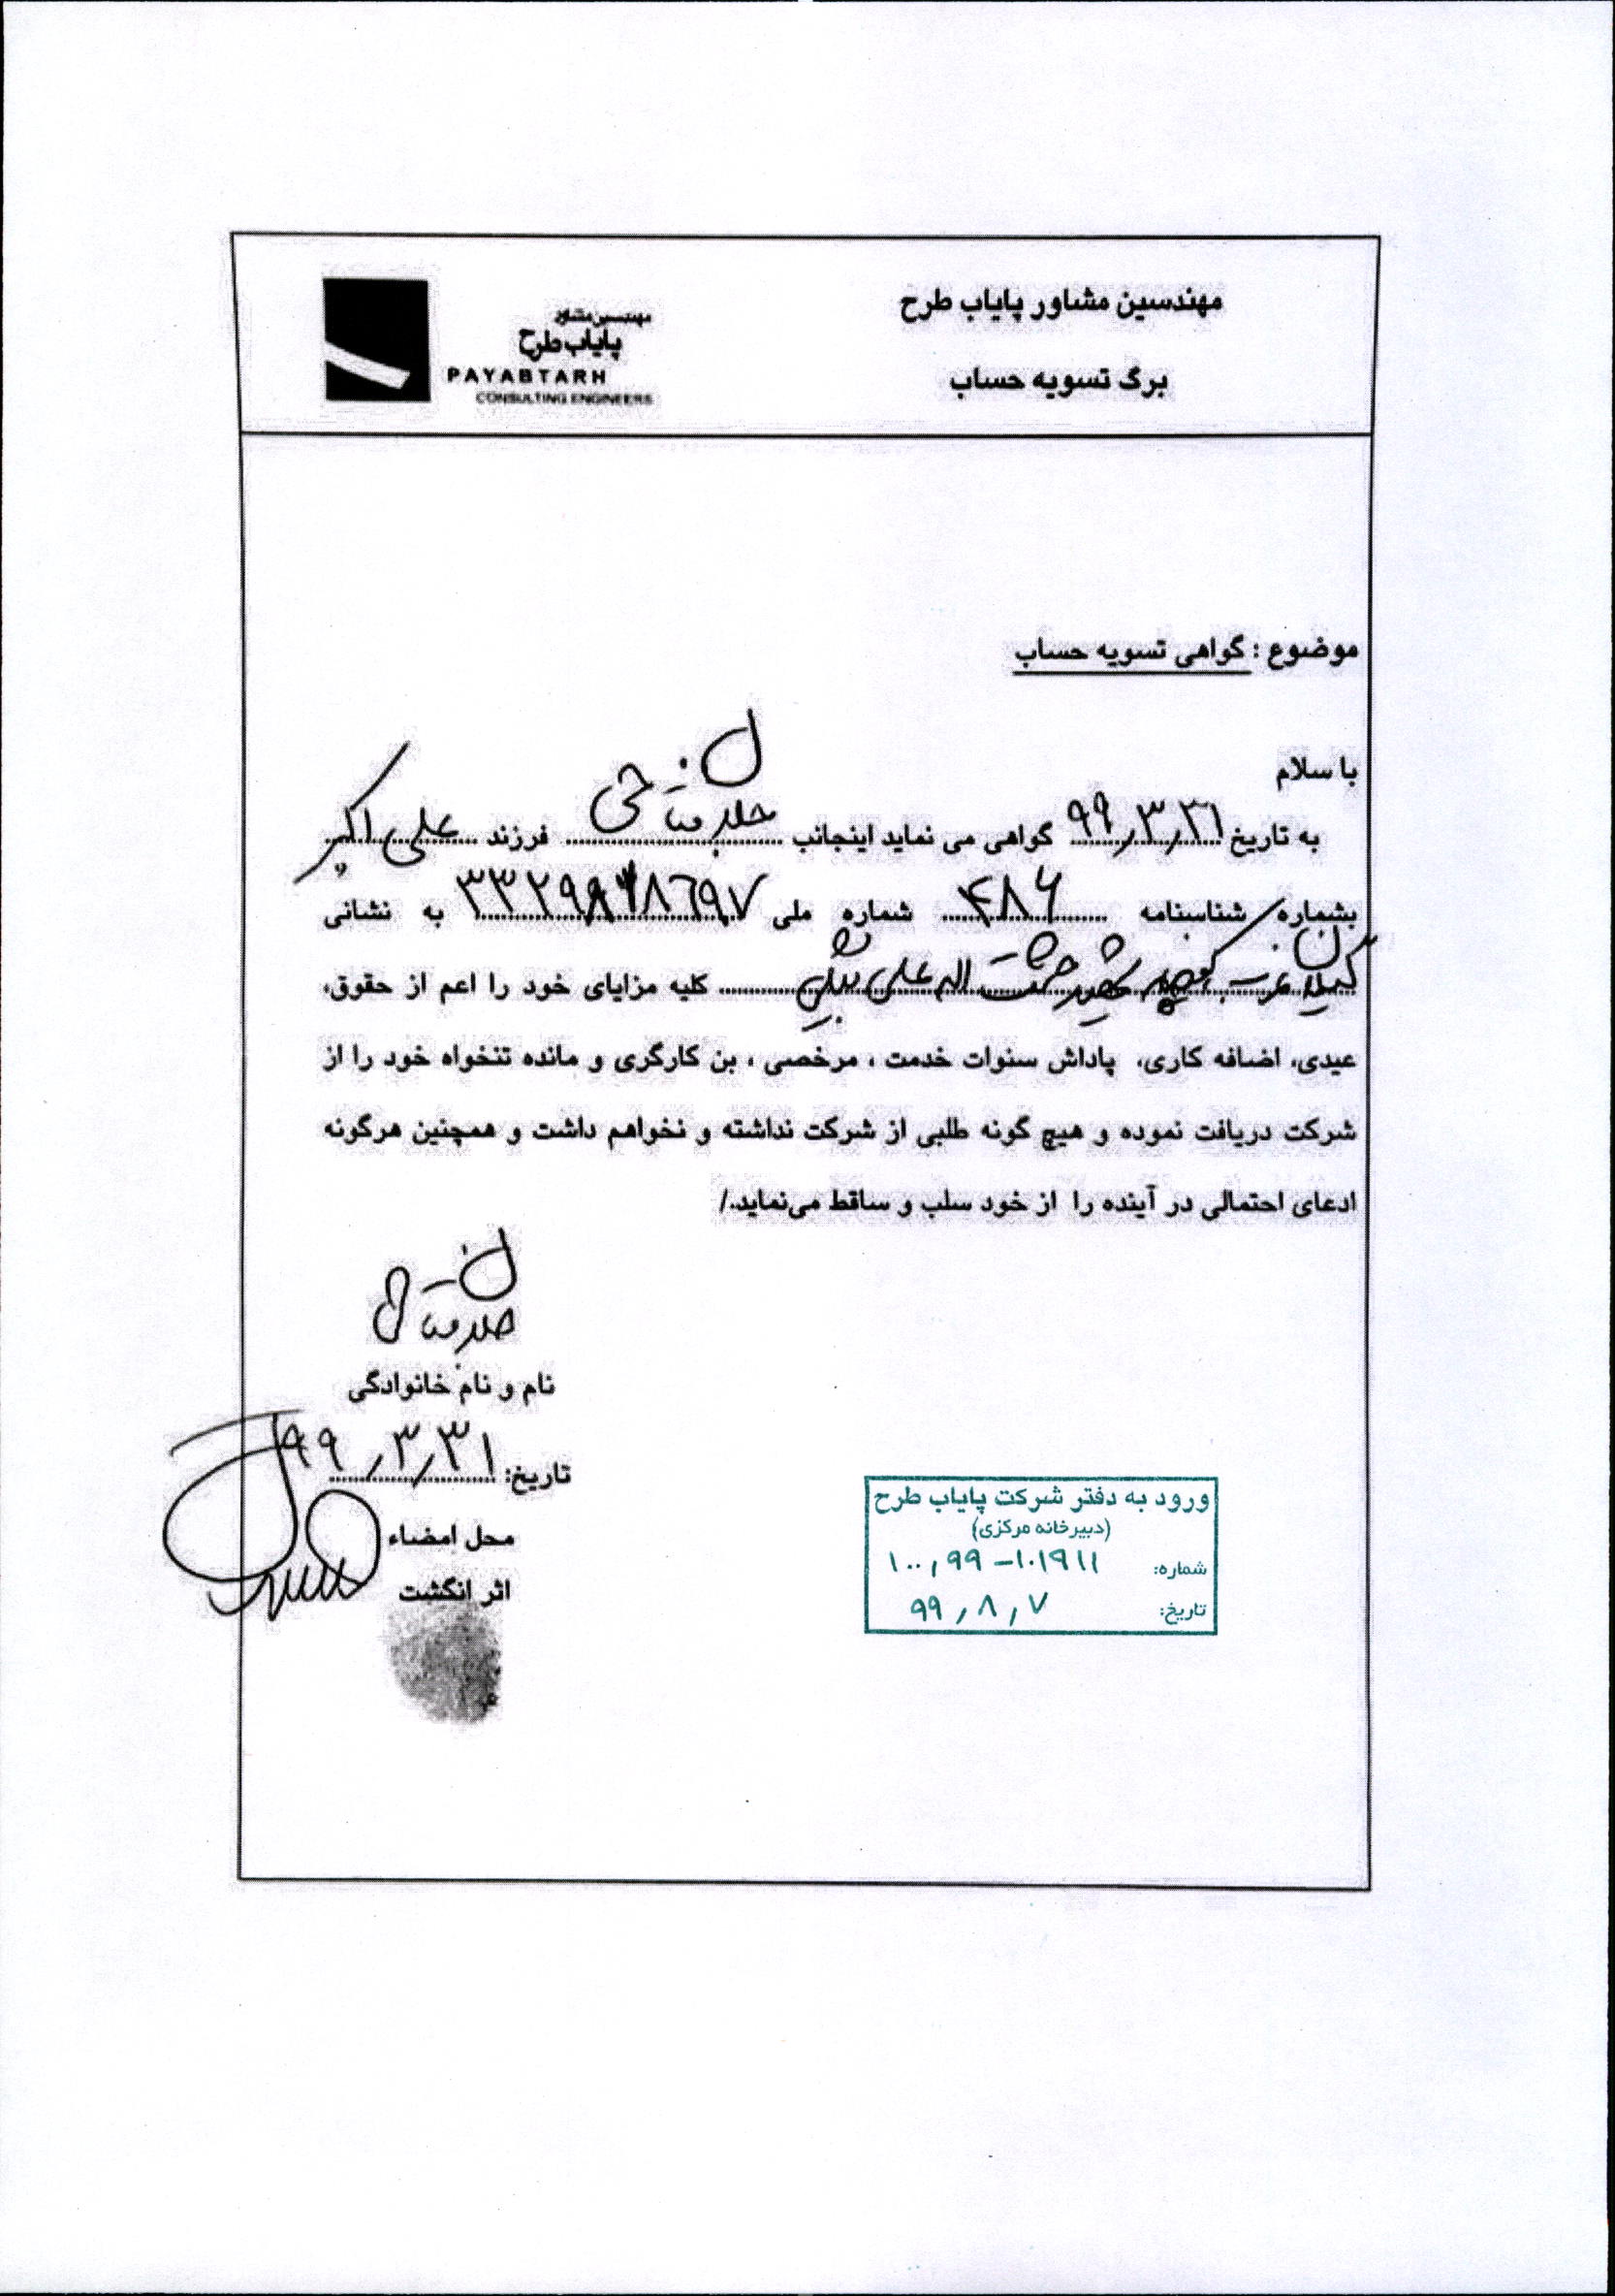 مهندسین مشاور پایاب طرح
برگ تسویه حساب
مهندسین مشاور
پایاب طرح
PAYABTARH
CONSULTING ENGINEERS
موضوع : گواهی تسویه حساب
با سلام
به تاریخ ۹۹٫۳٫۳۱ گواهی می نماید اینجانب فرزند علی اکبر
بشماره شناسنامه ۴۸۶ شماره ملی به نشانی
کلیه مزایای خود را اعم از حقوق،
عیدی، اضافه کاری، پاداش سنوات خدمت ، مرخصی ، بن کارگری و مانده تنخواه خود را از
شرکت دریافت نموده و هیچ گونه طلبی از شرکت نداشته و نخواهم داشت و همچنین هرگونه
ادعای احتمالی در آینده را از خود سلب و ساقط می‌نماید./
نام و نام خانوادگی
تاریخ: ۹۹٫۳٫۳۱
محل امضاء
اثر انگشت
ورود به دفتر شرکت پایاب طرح
(دبیرخانه مرکزی)
شماره: ۱۰۰٫۹۹-۱۰۱۹۱۱
تاریخ: ۹۹٫۸٫۷